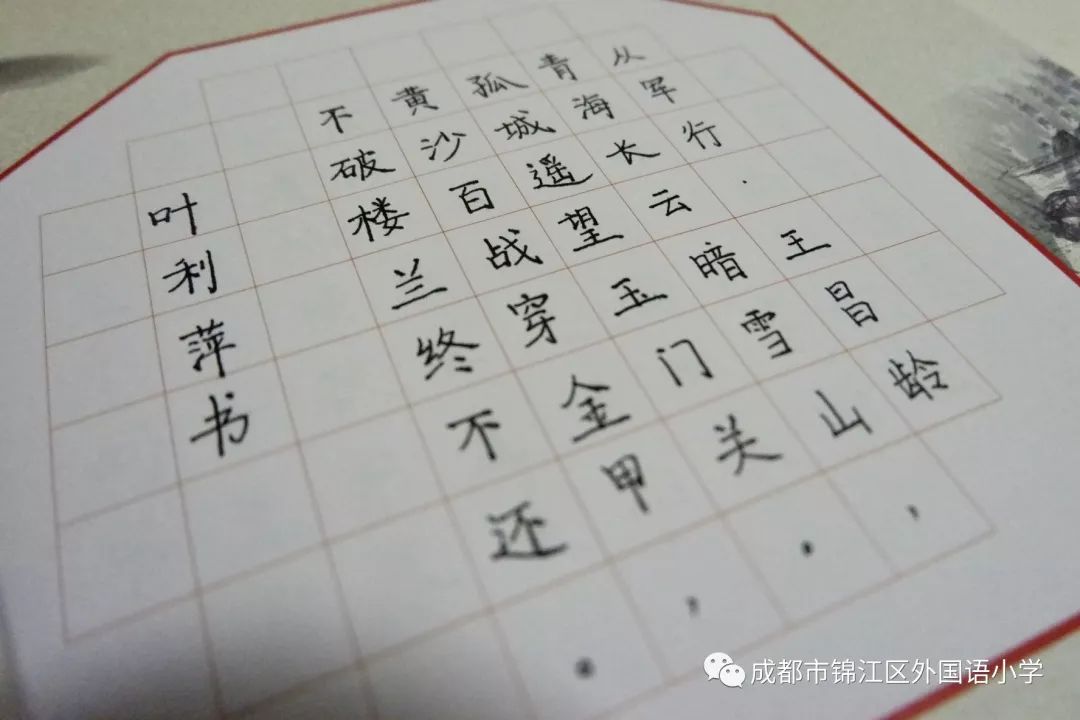 从军行·王昌龄
青海长云暗雪山，
孤城遥望玉门关。
黄沙百战穿金甲，
不破楼兰终不还。
叶利萍书
成都市锦江区外国语小学